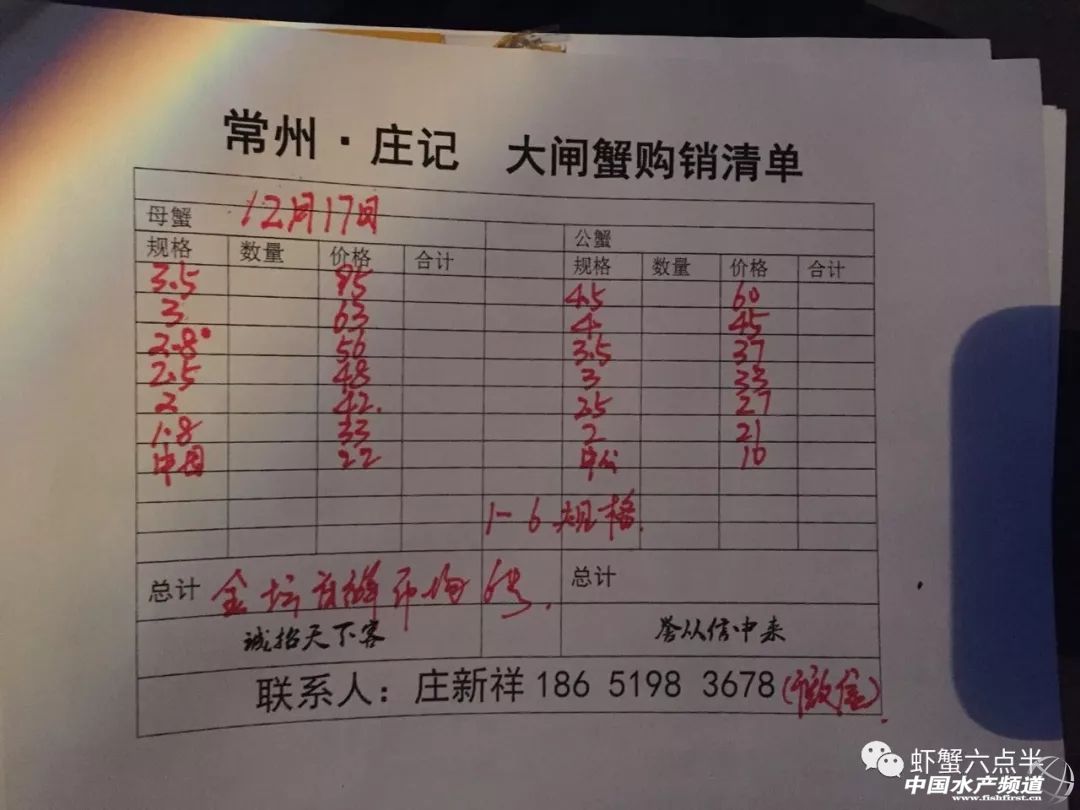 常州·庄记 大闸蟹购销清单
母蟹 12月17日 公蟹
规格 数量 价格 合计 规格 数量 价格 合计
3.5 85 4.5 60
3 63 4 45
2.8 56 3.5 37
2.5 48 3 33
2 42. 2.5 27
1.8 33 2 21
中母 22 中公 10
1-6规格.
总计 金坛 总计
诚招天下客 誉从信中来
联系人：庄新祥 186 5198 3678
虾蟹六点半
中国水产频道
www.fishfirst.cn